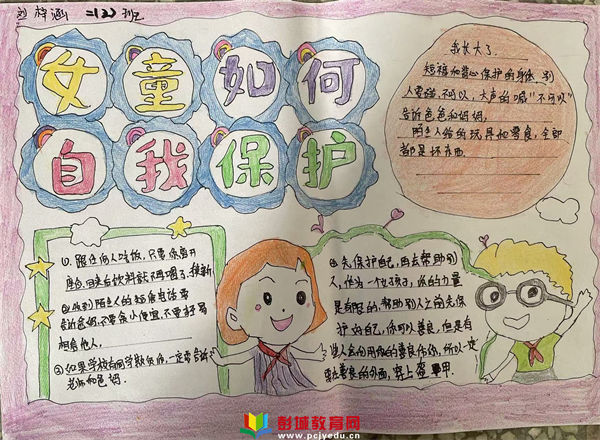 刘梓涵 二(2)班
女童如何
自我保护
我长大了
短裙和背心保护的身体 别
人要碰不可以,大声的喊"不可以"
告诉爸爸和妈妈,
陌生人给的玩具和零食,全部
都是坏东西.
①.跟任何人吃饭,只要你离开
座位,回来后饮料就不再喝了.换新
②收到陌生人的短信电话要
告诉爸妈,不要贪小便宜,不要轻易
相信他人.
③如果学校有同学欺负你,一定要告诉
老师和爸妈.
④先保护自己,再去帮助别
人,作为一个女孩子,你的力量
是有限的,帮助别人之前先保
护好自己,你可以善良,但是有
些人会利用你的善良伤你,所以一定
要在善良的外面,穿上盔甲.
彭城教育网
www.pcjyedu.cn